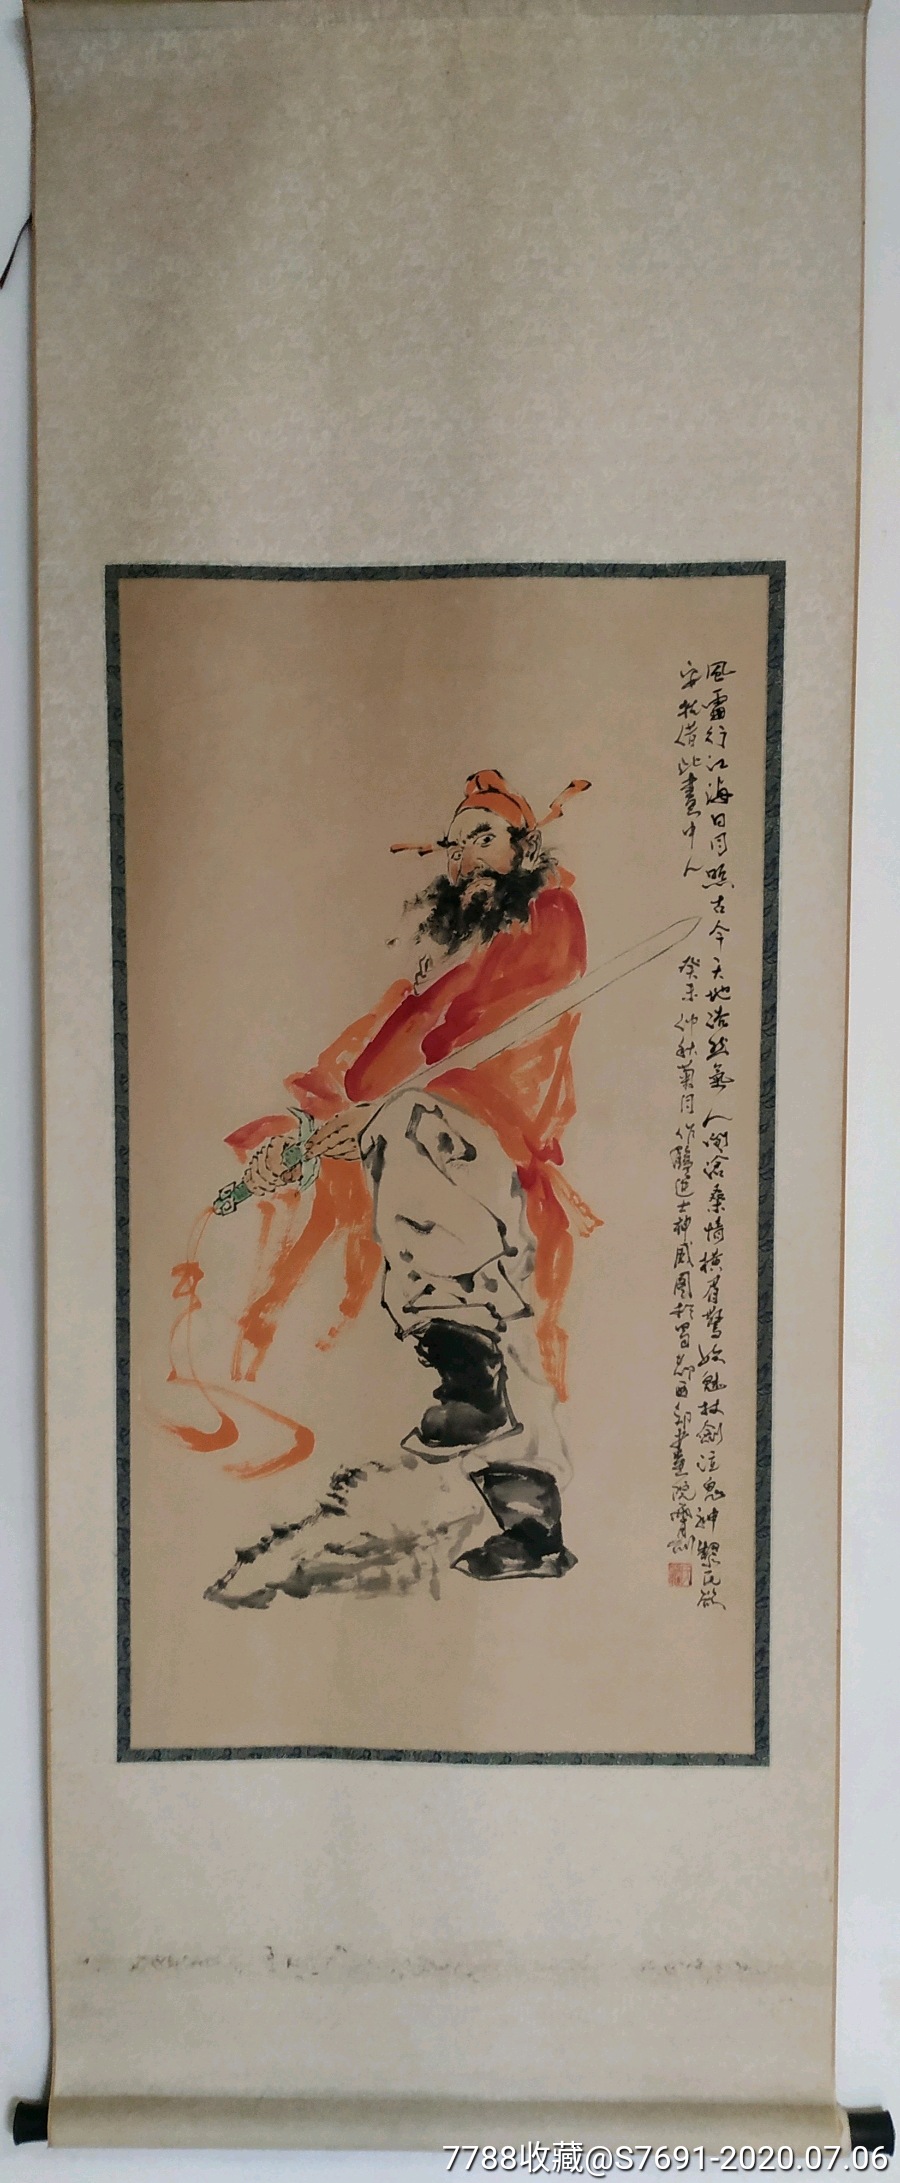 風雷行江海日月照古今天地浩然氣人間滄桑情橫眉驚妖魅杖劍泣鬼神黎民欲
安抚借此畫中人
癸未仲秋菊月作髯道士神威圖於蜀都西郊畫院
7788收藏@S7691-2020.07.06